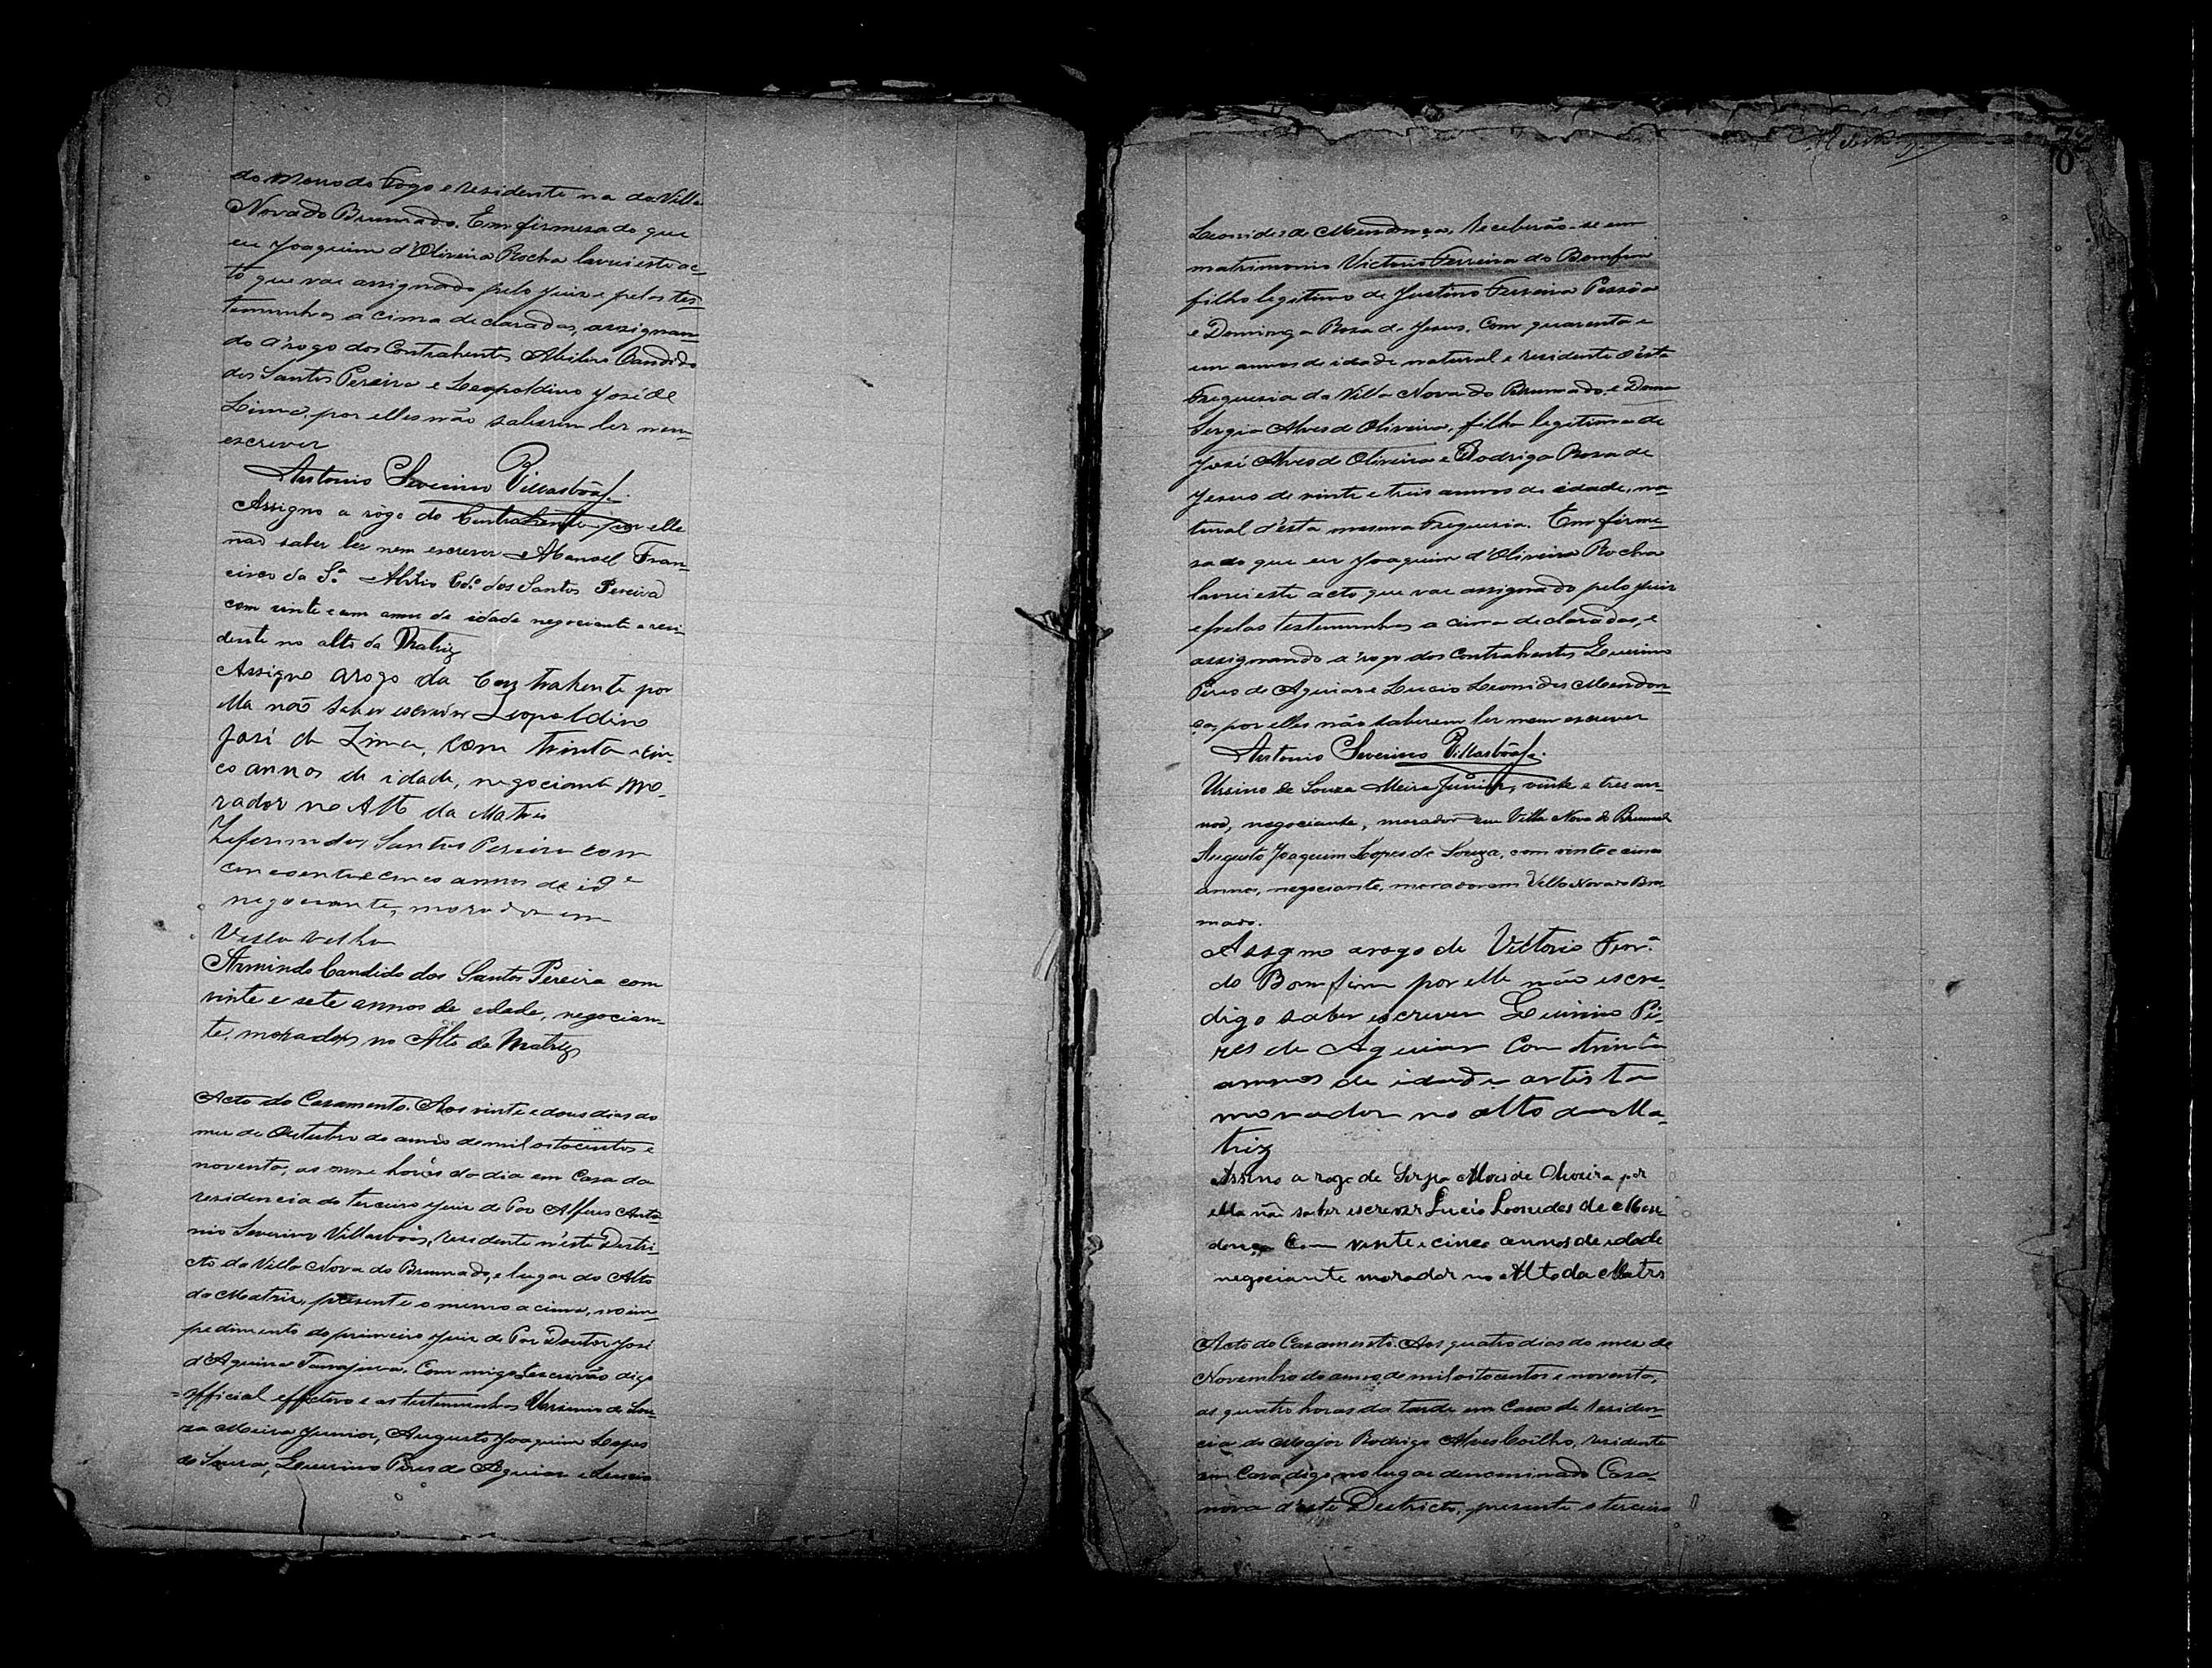 do Morro do Fogo e residente na da Villa
Nova do Brumado. Em firmesa do que
eu Joaquim d'Oliveira Rocha lavrei este ac-
to que vae assignado pelo Juiz e pelas tes-
temunhas a cima declaradas, assignan-
do a'rogo dos Contrahentes Candido
dos Santos Pereira e Leopoldino José de
Lima, por elles não saberem ler nem
escrever
Antonio Severino Villasbôas.
Assigno a rôgo do Contrahente por elle
não saber ler nem escrever Manoel Fran-
cisco da Sª. Cdº. dos Santos Pereira
com vinte e um annos de idade negociante e resi-
dente no alto da Matriz
Assigno arogo da Contrahente por
ella não saber escrever Leopoldino
José de Lima, com trinta e cin-
co annos de idade, negociante mo-
rador no Alto da Matris
Zeferino dos Santos Pereira com
cincoenta e cinco annos de idᵉ
negociante, morador em
Villa Velha
Armindo Candido dos Santos Pereira com
vinte e sete annos de edade, negocian-
te, morador no Alto da Matriz
Acto do Casamento. Aos vinte e dous dias do
mes de Outubro do anno de mil oitocentos e
noventa, as onze horas do dia em Casa da
residencia do terceiro Juiz de Paz Alferes Anto-
nio Severino Villasbôas, residente n'este Destri-
cto da Villa Nova do Brumado, e lugar do Alto
da Matriz, presente o mesmo a cima, no im-
pedimento do primeiro Juiz de Paz Doutor José
d'Aquino Tanajura. Com migo Escrivão digo
official effectivo e as testemunhas Ursino de Sou-
za Meira Junior, Augusto Joaquim Lopes
de Souza, Guerino Pires de Aguiar e Lucio
72
Leonides de Mendonça, Receberão-se em
matrimonio Victorio Ferreira do Bomfim
filho legitimo de Justino Ferreira Pessôa
e Dominga Rosa de Jesus. Com quarenta e
um annos de idade natural e residente d'esta
Freguesia da Villa Nova do Brumado. e Dona
Sergia Alves de Oliveira, filha legitima de
José Alves de Oliveira e Rodriga Rosa de
Jesus de vinte e treis annos de idade, na-
tural d'esta mesma Freguesia. Em firme-
sa do que eu Joaquim d'Oliveira Rocha
lavrei este acto que vae assignado pelo Juiz
e pelas testemunhas a cima declaradas, e
assignando a'rogo dos Contrahentes Guerino
Pires de Aguiar e Lucio Leonides Mendon-
ça, por elles não saberem ler nem escrever
Antonio Severino Villasbôas.
Ursino de Souza Meira Junior, vinte e tres an-
nos, negociante, morador em Villa Nova do Brumado
Augusto Joaquim Lopes de Souza, com vinte e cinco
annos, negociante, morador em Villa Nova do Bru-
mado.
Assigno arogo de Victorio Ferr.ª
do Bomfim por elle não escre-
digo saber escrever Guirino Pi-
res de Aguiar Com trinta
annos de idade artista
morador no alto da Ma-
triz
Assino a rogo de Sergia Alves de Oliveira por
ella não saber escrever Lucio Leonides de Men-
donça Com vinte e cinco annos de edade
negociante morador no Alto da Matris
Acto do Casamento. Aos quatro dias do mez de
Novembro do anno de mil oitocentos e noventa,
as quatro horas da tarde em Casa de residen-
cia do Major Rodrigo Alves Coêlho, residente
em Casa digo, no lugar denominado Casa-
nova d'este Destricto, presente o terceiro